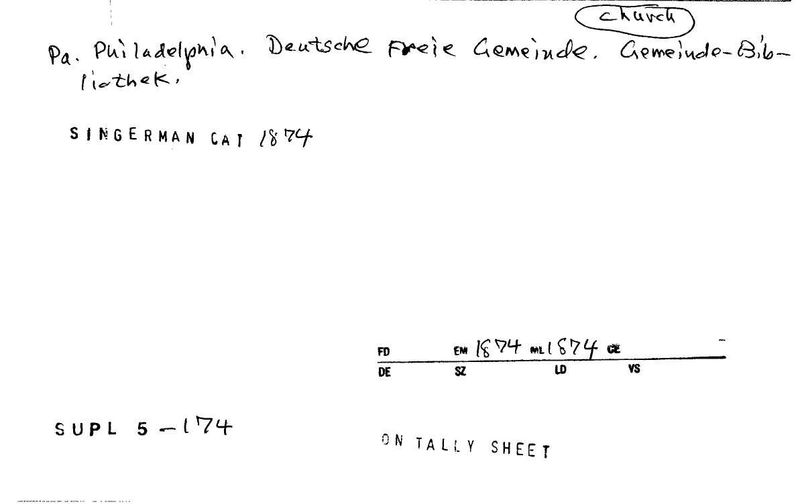 church
Pa. Philadelphia. Deutsche Freie Gemeinde. Gemeinde-Bib-
liothek.
SINGERMAN CAT 1874
FD EM 1874 ML 1874 CE
DE SZ LD VS
SUPL 5 - 174
ON TALLY SHEET